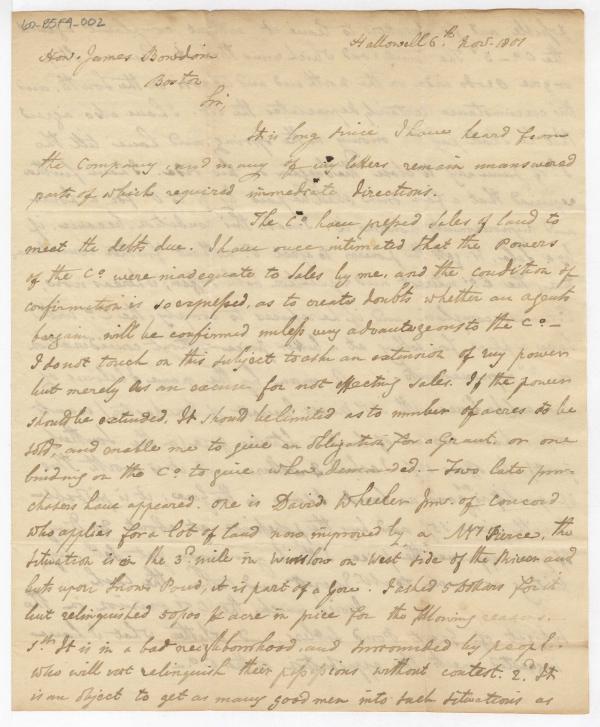 62-85F4-002
Hallowell 6th Novr. 1801
Hon. James Bowdoin
Boston
Sir,
It is long since I have heard from
the Company, and many of my letters remain unanswered
parts of which required immediate directions.
The Co. have pressed sales of land to
meet the debts due. I have once intimated that the Powers
of the Co. were inadequate to sales by me, and the condition of
confirmation is so expressed, as to create doubts whether an agents
bargain will be confirmed unless very advantageous to the Co. —
I do not touch on this subject to ask an extension of my power
but merely as an excuse for not effecting sales. If the power
should be extended, It should be limited as to number of acres to be
sold, and enable me to give an obligation for a Grant. or one
binding on the Co. to give when demanded. — Two late pur-
chasers have appeared. one is David Wheeler Junr. of Concord
who applies for a lot of land now improved by a Mr Pierce, the
situation is in the 3d. mile in Winslow on west side of the River and
buts upon Snows Pond, it is part of a Gore. I asked 5 Dollars for it
but relinquished 50/100 acre in price for the following reasons.
1st. It is in a bad neighbourhood, and surrounded by people
who will not relinquish their possessions without contest. 2d. It
is an object to get as many good men into such situations as